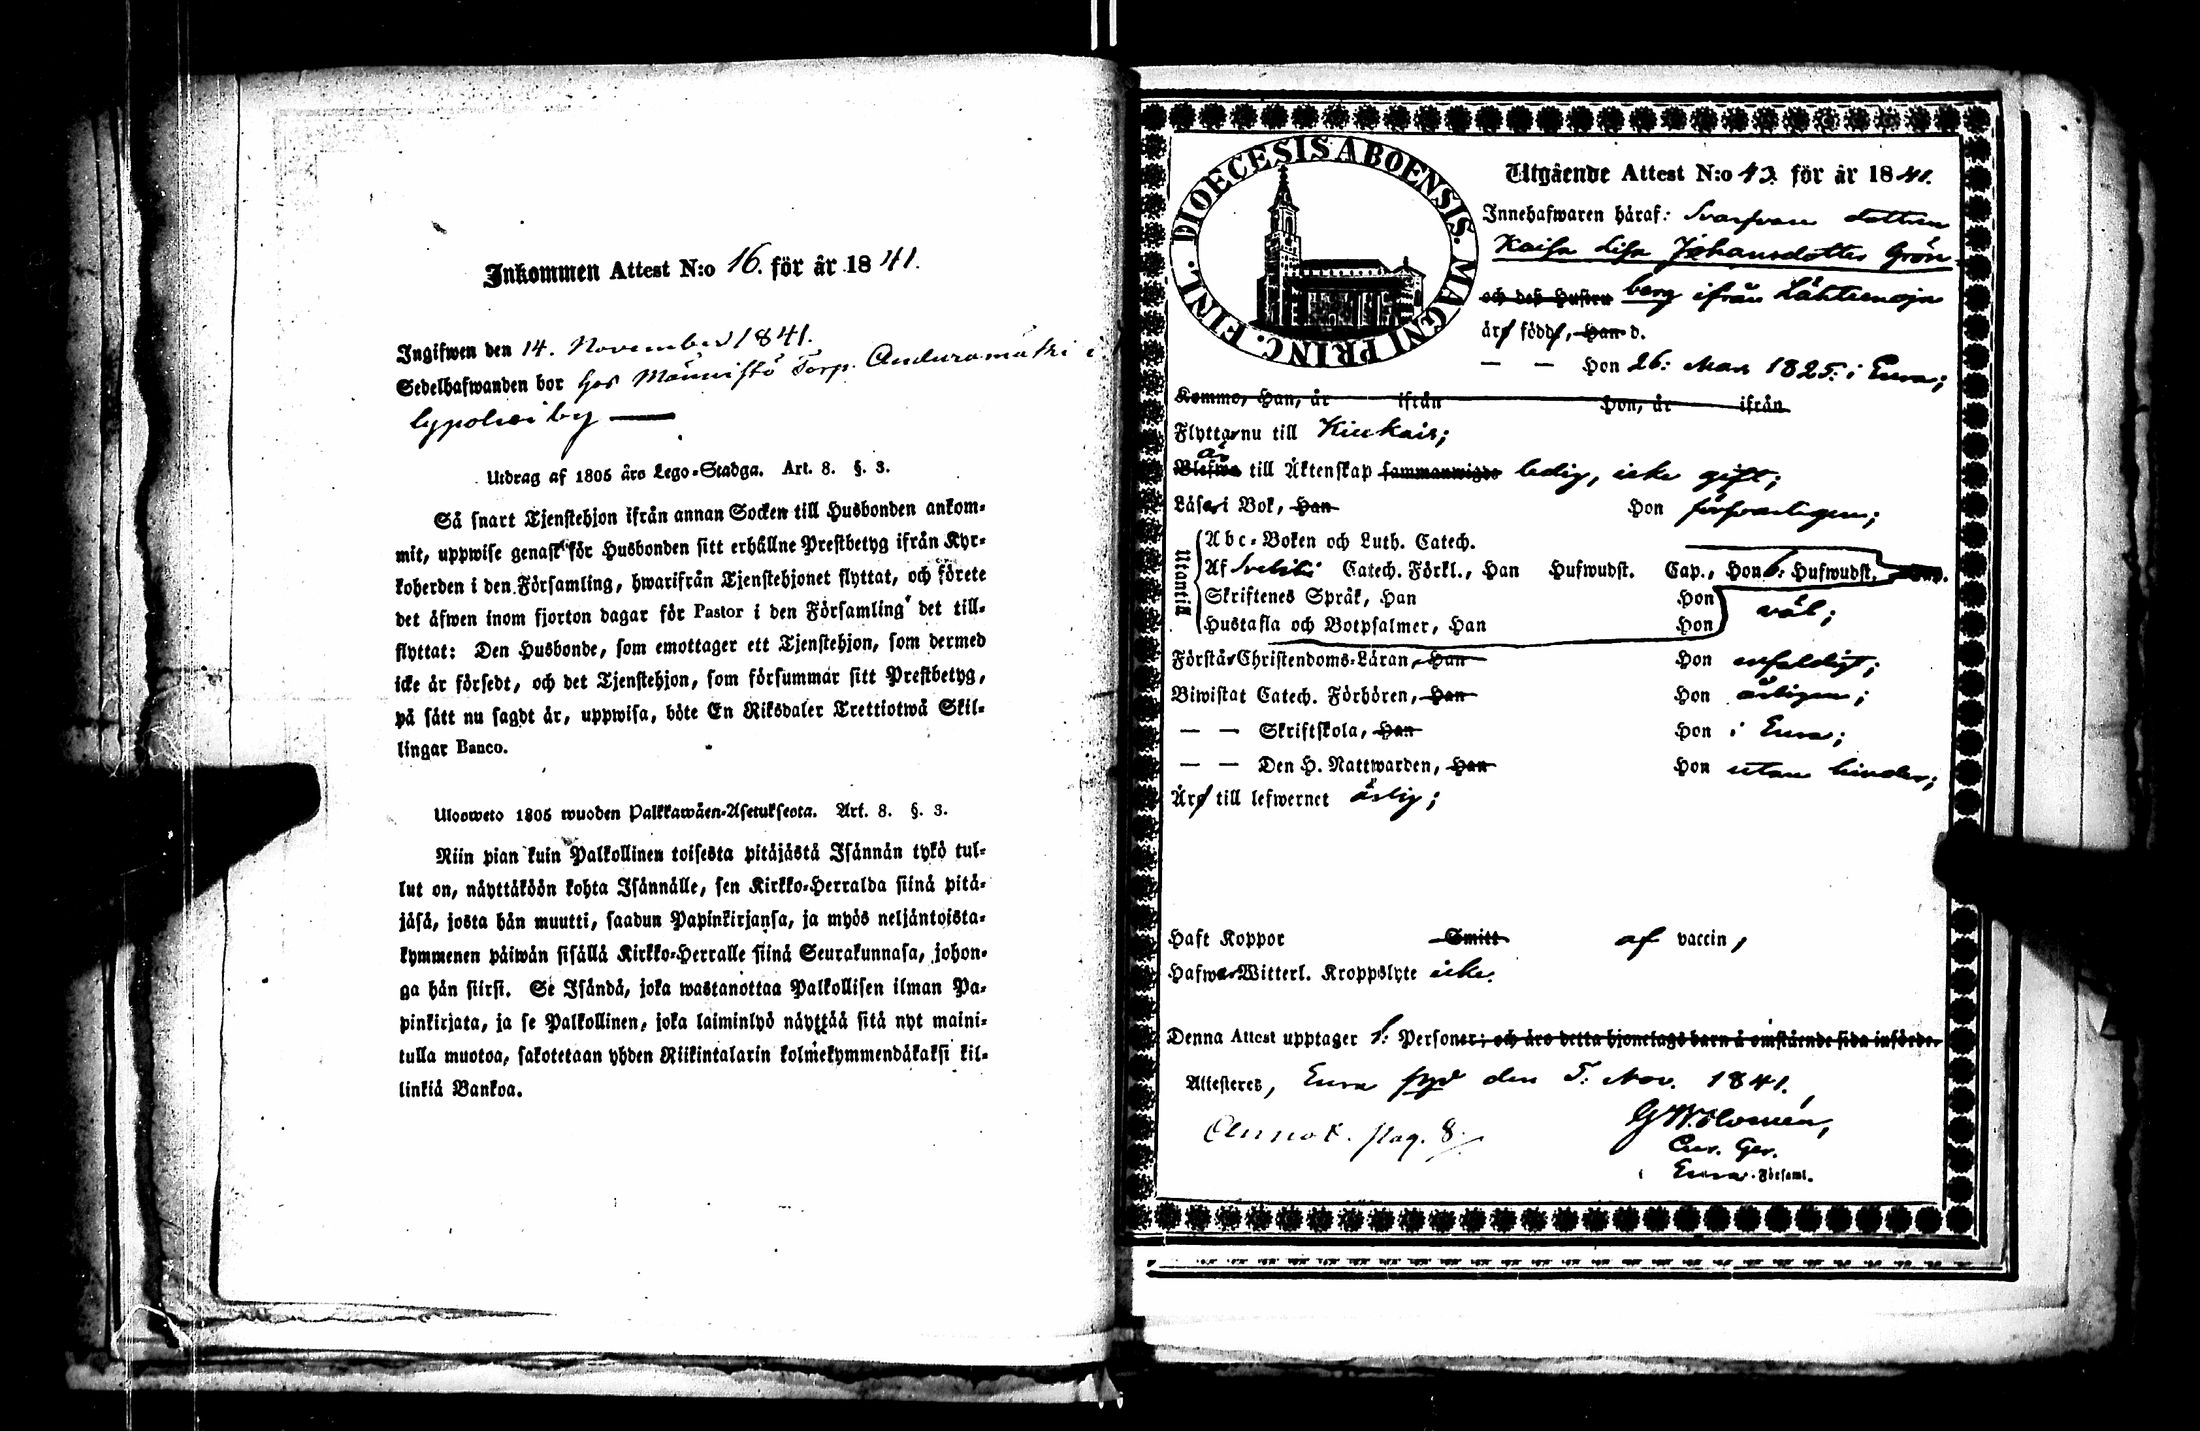 Inkommen Attest N:o 16. för år 1841.
Ingifwen den 14. November 1841.
Sedelhafwanden bor hos Männistö Torp. i
by
Utdrag af 1805 års Lego-Stadga. Art. 8. §. 3.
Så snart Tjenstehjon ifrån annan Socken till Husbonden ankom-
mit, uppwise genast för Husbonden sitt erhållne Prestbetyg ifrån Kyr-
koherden i den Församling, hwarifrån Tjenstehjonet flyttat, och förete
det äfwen inom fjorton dagar för Pastor i den Församling det till-
flyttat: Den Husbonde, som emottager ett Tjenstehjon, som dermed
icke är försedt, och det Tjenstehjon, som försummar sitt Prestbetyg,
på sätt nu sagdt är, uppwisa, böte En Riksdaler Trettiotwå Skil-
lingar Banco.
Ulosweto 1805 wuoden Palkkawäen-Asetuksesta. Art. 8. §. 3.
Niin pian kuin Palkollinen toisesta pitäjästä Isännän tykö tul-
lut on, näyttäköön kohta Isännälle, sen Kirkko-Herralda siinä pitä-
jäsä, josta hän muutti, saadun Papinkirjansa, ja myös neljäntoista-
kymmenen päiwän sisällä Kirkko-Herralle siinä Seurakunnasa, johon-
ga hän siirsi. Se Isändä, joka wastanottaa Palkollisen ilman Pa-
pinkirjata, ja se Palkollinen, joka laiminlyö näyttää sitä nyt maini-
tulla muotoa, sakotetaan yhden Riikintalarin kolmekymmendäkaksi kil-
linkiä Bankoa.
DIOECESIS ABOENSIS. MAGNI PRINC. FINL.
Utgående Attest N:o 43. för år 1841.
Innehafwaren häraf: Svarfvare dottren
Kaisa Lisa Johansdotter Grön-
och deß Hustru berg ifrån Lähteenoja
är född, Han d.
— — Hon 26: Mars 1825: i Eura;
Kommo, Han, år ifrån Hon, år ifrån
Flyttar nu till Kiukais;
är
Blefwo till Äktenskap sammanwigde ledig, icke gift;
Läser i Bok, Han Hon försvarligen;
Utantill
Abc-Boken och Luth. Catech.
Af Svebilii Catech. Förkl., Han Hufwudst. Cap., Hon 6: Hufwudst. Cap.
Skriftenes Språk, Han Hon väl;
Hustafla och Botpsalmer, Han Hon
Förstår Christendoms-Läran, Han Hon enfaldigt;
Biwistat Catech. Förhören, Han Hon årligen;
— — Skriftskola, Han Hon i Eura;
— — Den H. Nattwarden, Han Hon utan hinder;
Är till lefwernet ärlig;
Haft Koppor Smitt af vaccin,
Hafwer Witterl. Kroppslyte icke.
Denna Attest upptager 1: Personer; och äro detta hjonelags barn å omstående sida införde.
Attesteres, Eura den 5. Nov. 1841.
Annot. pag. 8.
G W Homén,
Cur. Ger.
i Eura Församl.